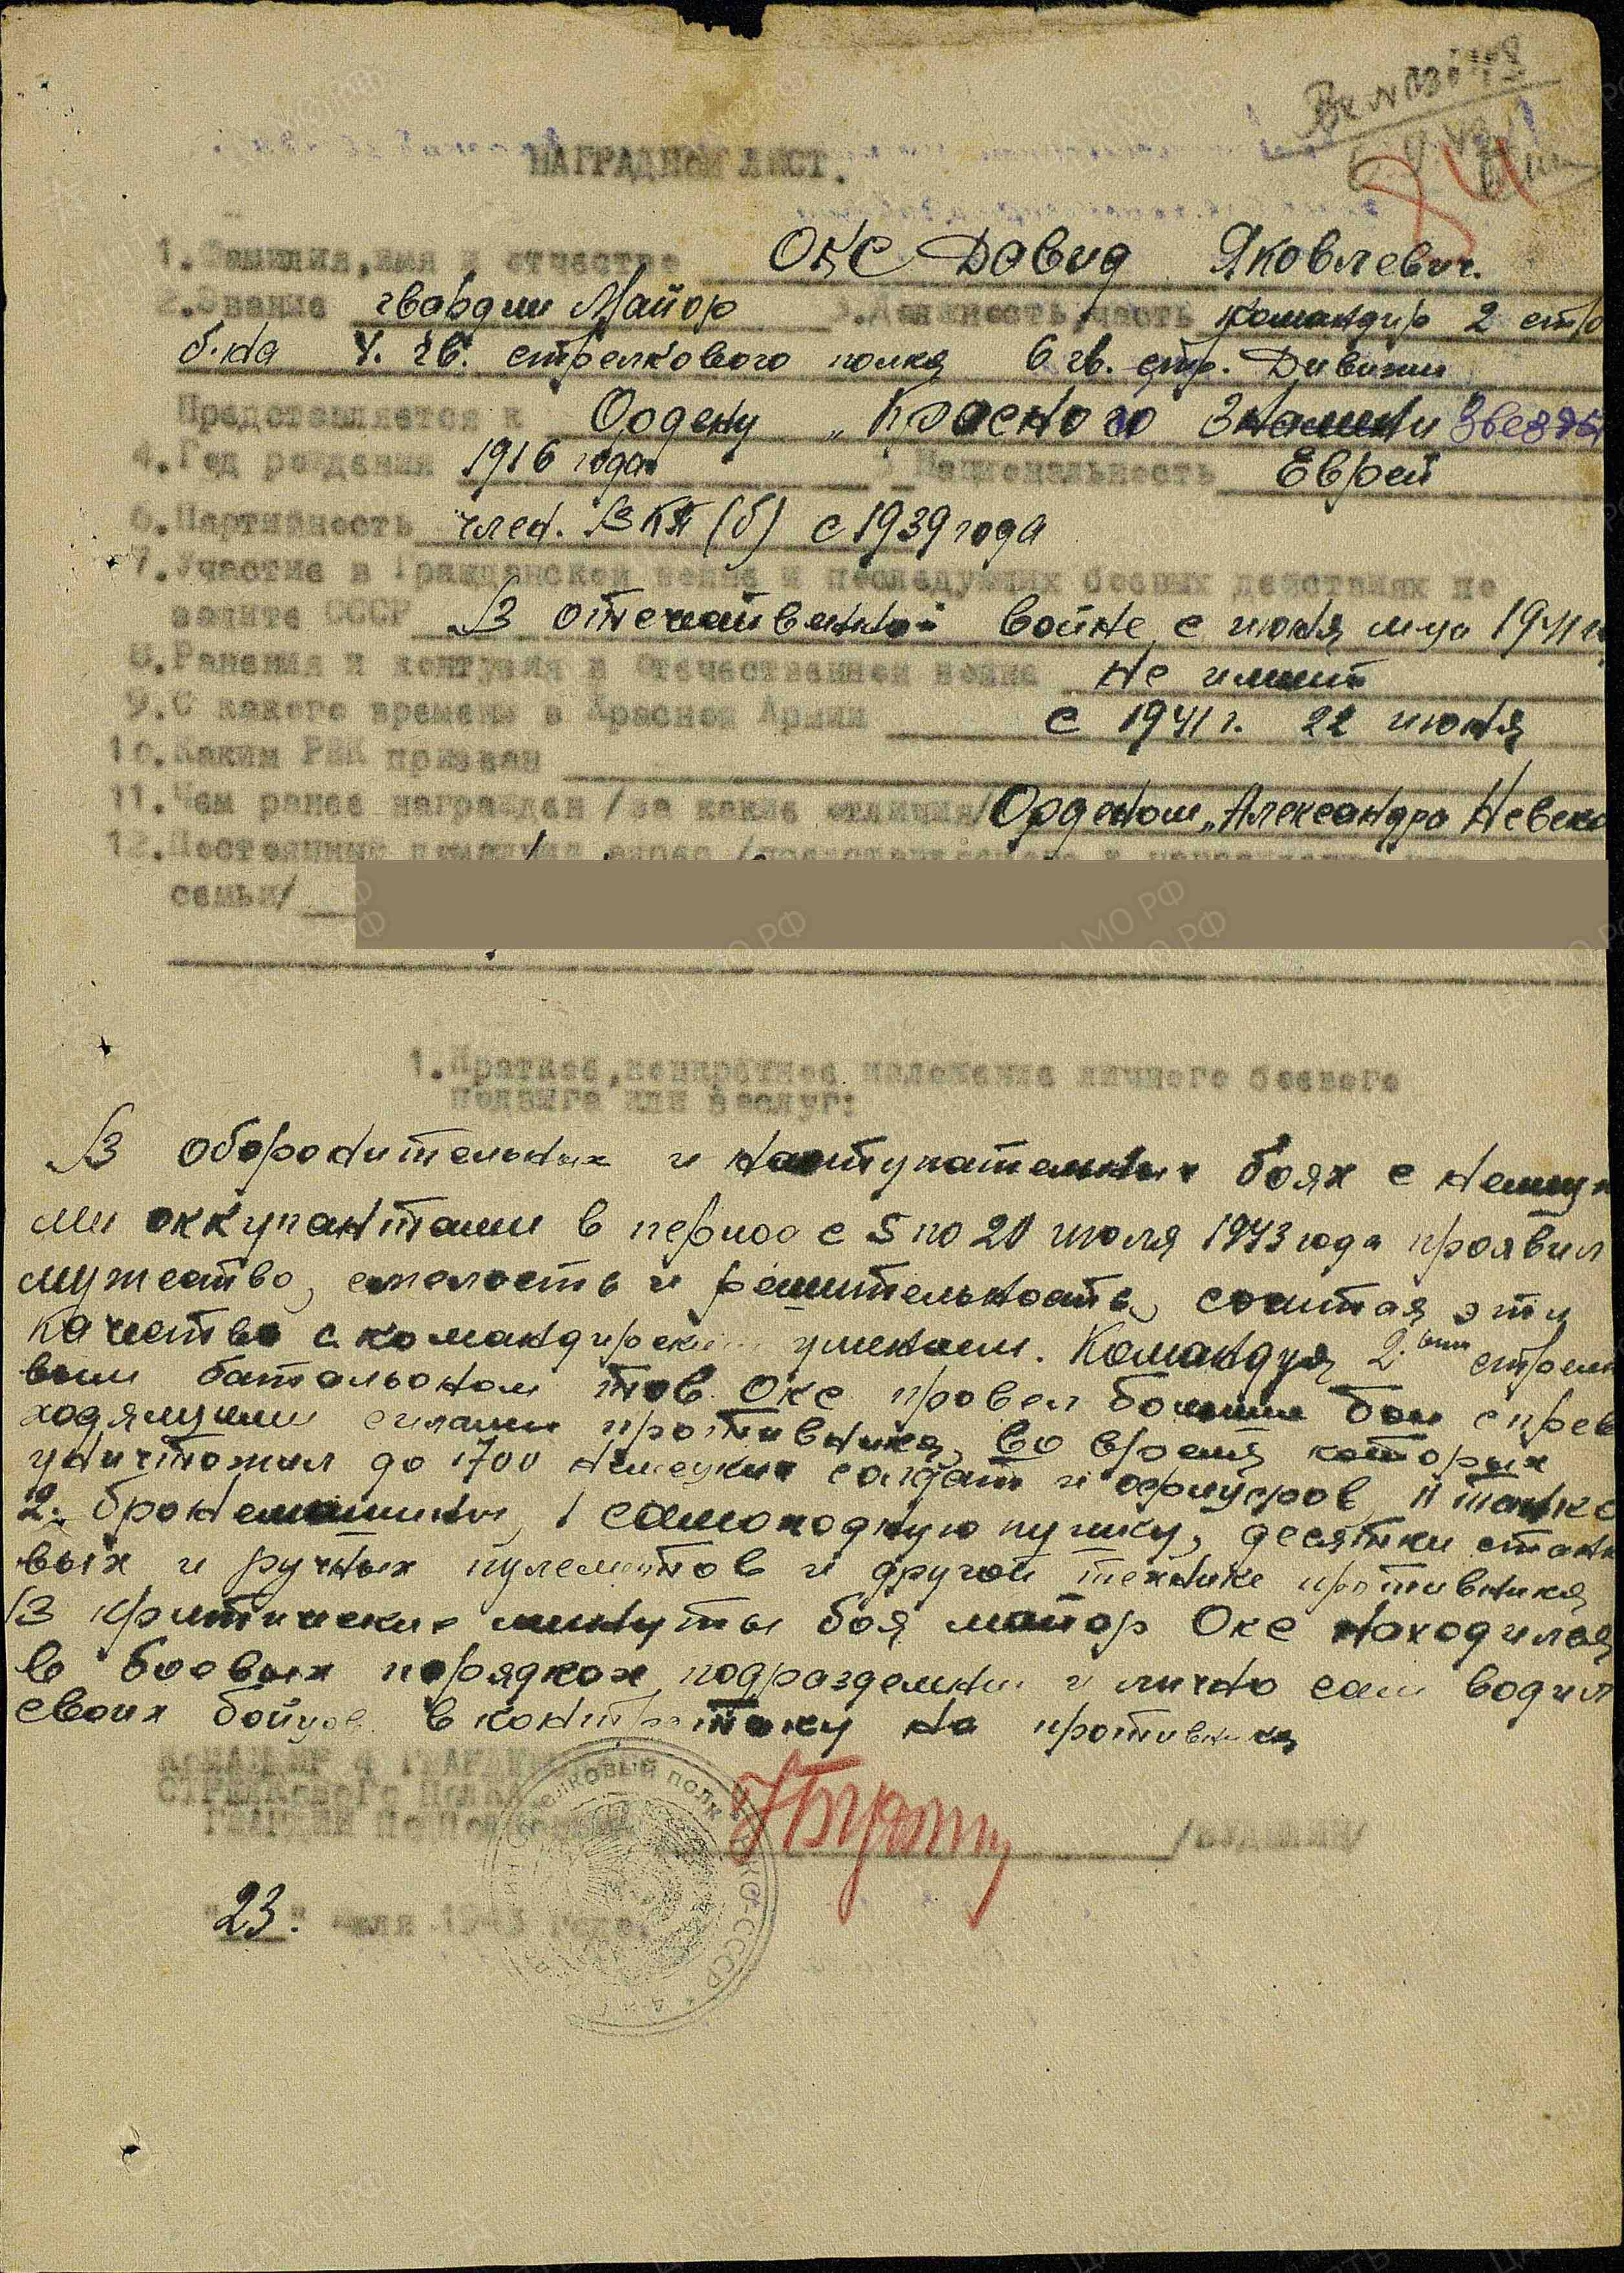 НАГРАДНОЙ ЛИСТ.
1. Фамилия, имя и отчество Окс Давид Яковлевич.
2. Звание гвардии Майор 3. Должность, часть командир 2 стр
б-на 4. гв. стрелкового полка 6 гв. стр. Дивизии
Представляется к Ордену „Красного Знамени Звезды
4. Год рождения 1916 года 5 Национальность Еврей
6. Партийность член. ВКП(б) с 1939 года
7. Участие в Гражданской войне и последующих боевых действиях по
защите СССР В отечественной войне с июня м-ца 1941 г.
8. Ранения и контузия в Отечественной войне не имеет
9. С какого времени в Красной Армии с 1941 г. 22 июня
10. Каким РВК призван
11. Чем ранее награжден /за какие отличия/ Орденом „Александра Невско
12. Постоянный
семьи/
1. Краткое, конкретное изложение личного боевого
подвига или заслуг:
В оборонительных и наступательных боях с немецки
ми оккупантами в период с 5 по 20 июля 1943 года проявил
мужество, смелость и решительность, сочитая эти
качества с командирским умением. Командуя 2.ым стрелк
вым батальоном тов. Окс провел большие бои с прев
ходящими силами противника, во время которых
уничтожил до 1700 немецких солдат и офицеров, 11 танко
2. бронемашины, 1 самоходную пушку, десятки станк
вых и ручных пулеметов и другой технике противника
В критические минуты боя майор Окс находился
в боевых порядках подразделений и лично сам водил
своих бойцов в контратаку на противника
КОМАНДИР 4 ГВАРДЕЙСКОГО
СТРЕЛКОВОГО ПОЛКА
ГВАРДИИ ПОДПОЛКОВНИК
СТРЕЛКОВЫЙ ПОЛК НКО-СССР
"23." июля 1943 года.